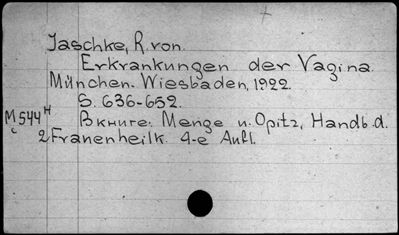 Jaschke, R. von.
Erkrankungen der Vagina.
München-Wiesbaden, 1922.
S. 636-652.
M544 н
с
В книге: Menge и Opitz, Handb. d.
Frauenheilk. 4-е Aufl.